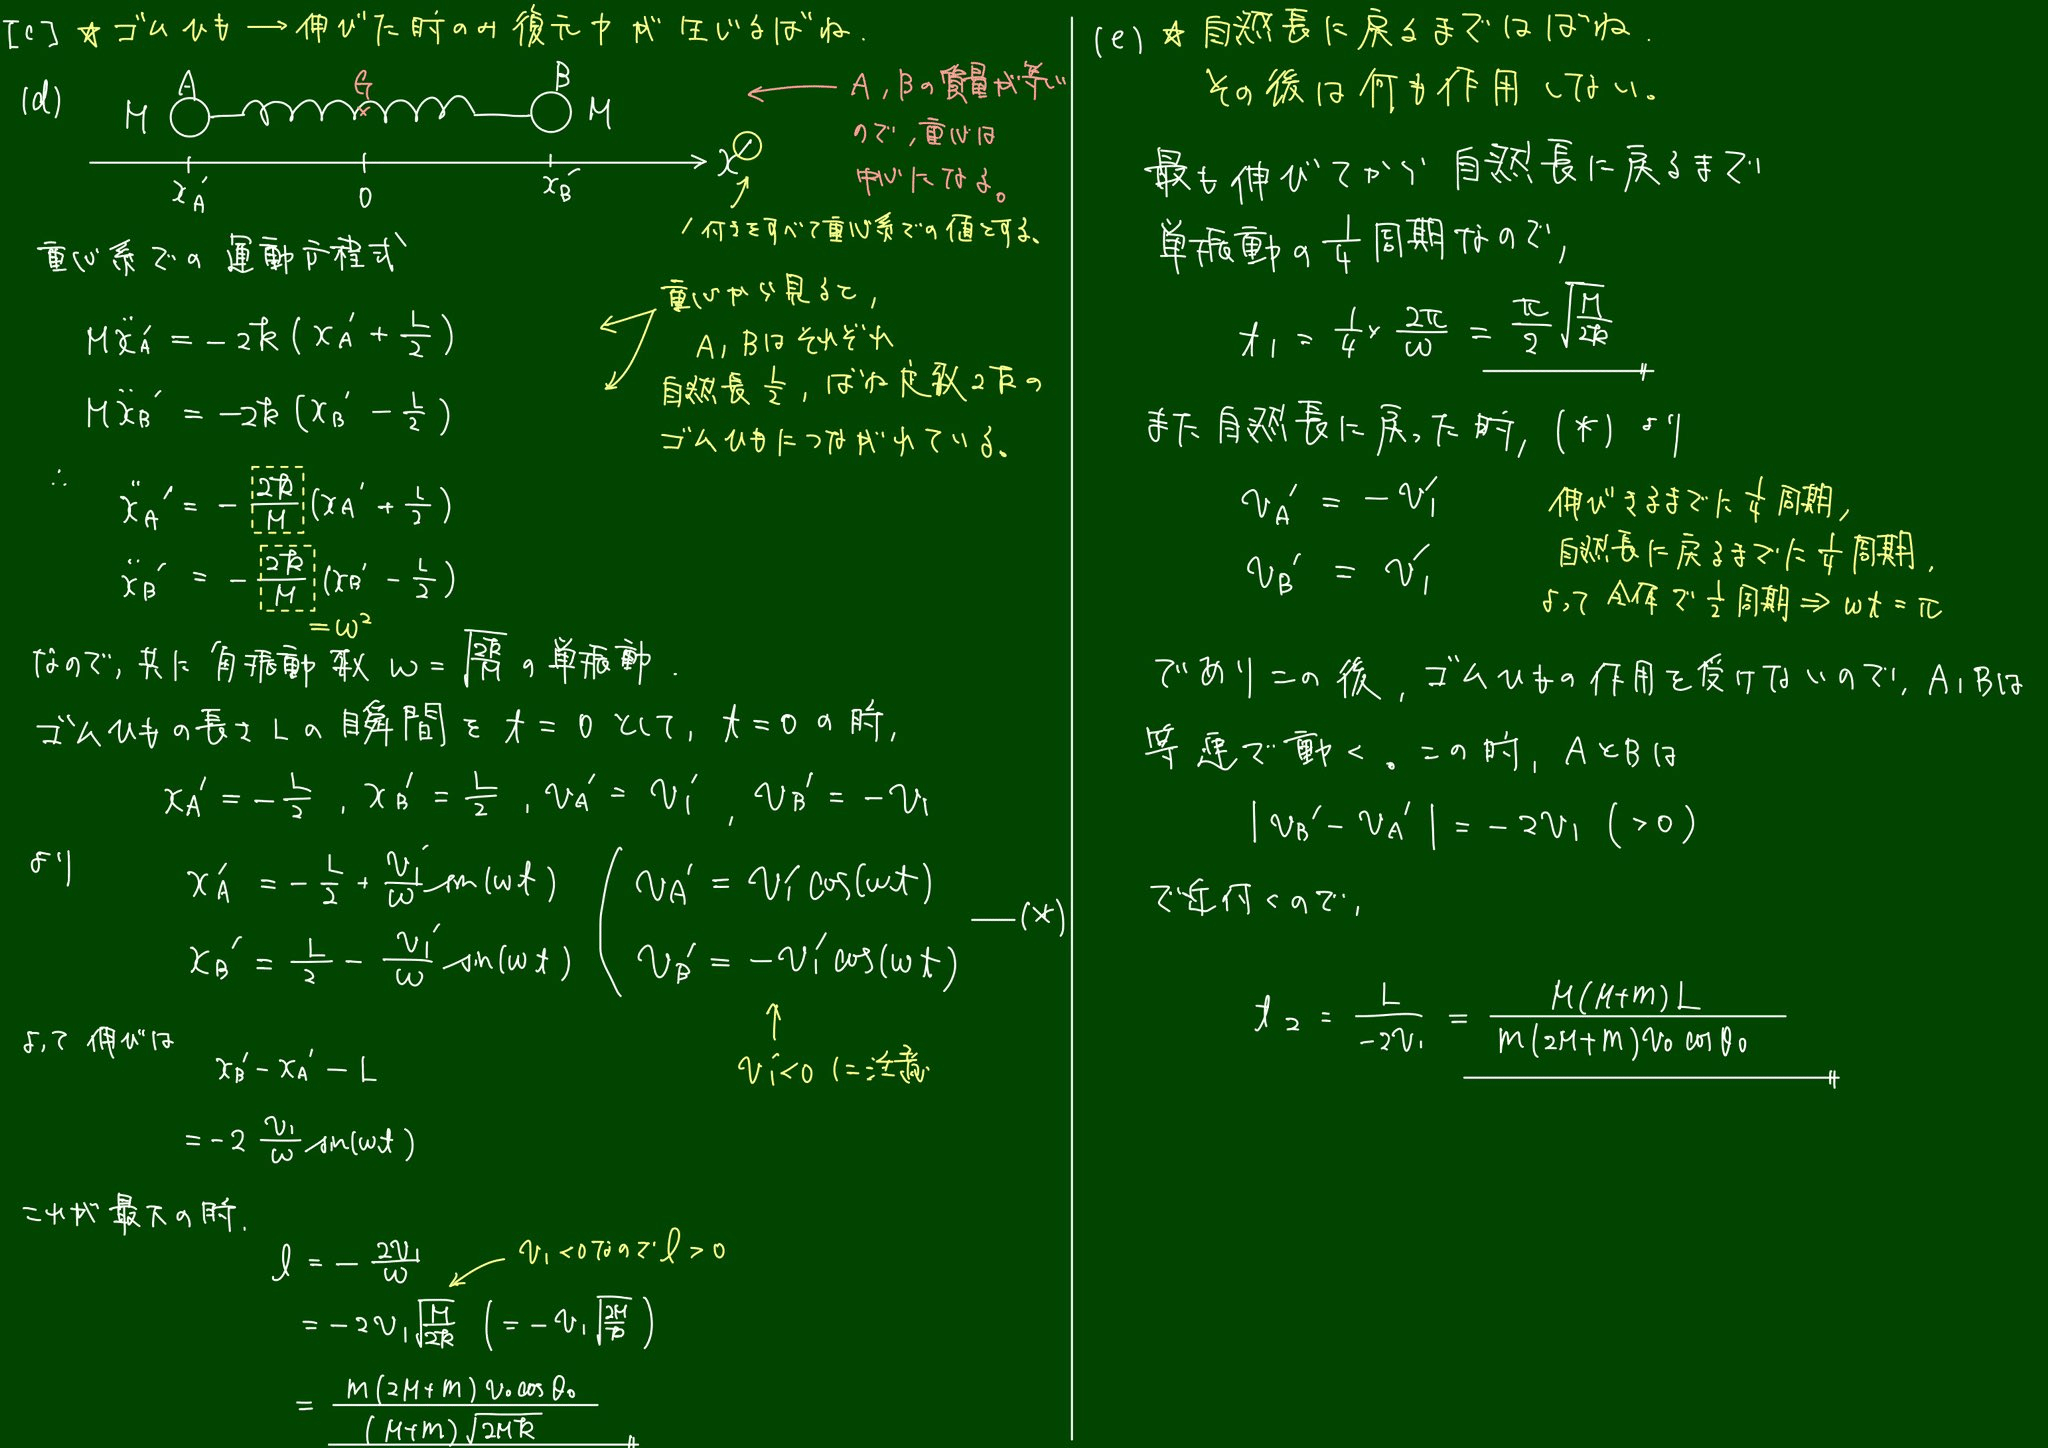 [c] ☆ ゴムひも → 伸びた時のみ復元力が生じるばね.
(d)
A G B
M M
x'
x_A' 0 x_B'
A, Bの質量が等しい
ので, 重心は
中心になる。
′付きをすべて重心系での値とする。
重心系での運動方程式
Mẍ_A' = -2k(x_A' + L/2)
Mẍ_B' = -2k(x_B' - L/2)
重心から見ると,
A, Bはそれぞれ
自然長 L/2, ばね定数2kの
ゴムひもにつながれている。
∴ ẍ_A' = -2k/M (x_A' + L/2)
ẍ_B' = -2k/M (x_B' - L/2)
= ω²
なので, 共に角振動数 ω = √(2k/M) の単振動.
ゴムひもの長さLの瞬間を t = 0 として, t = 0 の時,
x_A' = -L/2 , x_B' = L/2 , v_A' = v_1' , v_B' = -v_1
より x_A' = -L/2 + v_1'/ω sin(ωt) ( v_A' = v_1' cos(ωt)
x_B' = L/2 - v_1'/ω sin(ωt) ( v_B' = -v_1' cos(ωt) —(*)
v_1' < 0 に注意
よって伸びは
x_B' - x_A' - L
= -2 v_1/ω sin(ωt)
これが最大の時.
l = - 2v_1/ω
v_1 < 0 なので l > 0
= -2v_1 √(M/2k) (= -v_1 √(2M/k))
= m(2M+m)v_0 cosθ_0 / (M+m)√(2Mk)
(e) ☆ 自然長に戻るまではばね.
その後は何も作用してない。
最も伸びてから自然長に戻るまで
単振動の 1/4 周期なので,
t_1 = 1/4 × 2π/ω = π/2 √(M/2k)
また自然長に戻った時, (*) より
v_A' = -v_1'
v_B' = v_1'
伸びきるまでに 1/4 周期,
自然長に戻るまでに 1/4 周期,
よって全体で 1/2 周期 ⇒ ωt = π
でありこの後, ゴムひもの作用を受けないので, A, Bは
等速で動く。この時, AとBは
|v_B' - v_A'| = -2v_1 (>0)
で近付くので,
t_2 = L/(-2v_1) = M(M+m)L / m(2M+m)v_0 cosθ_0